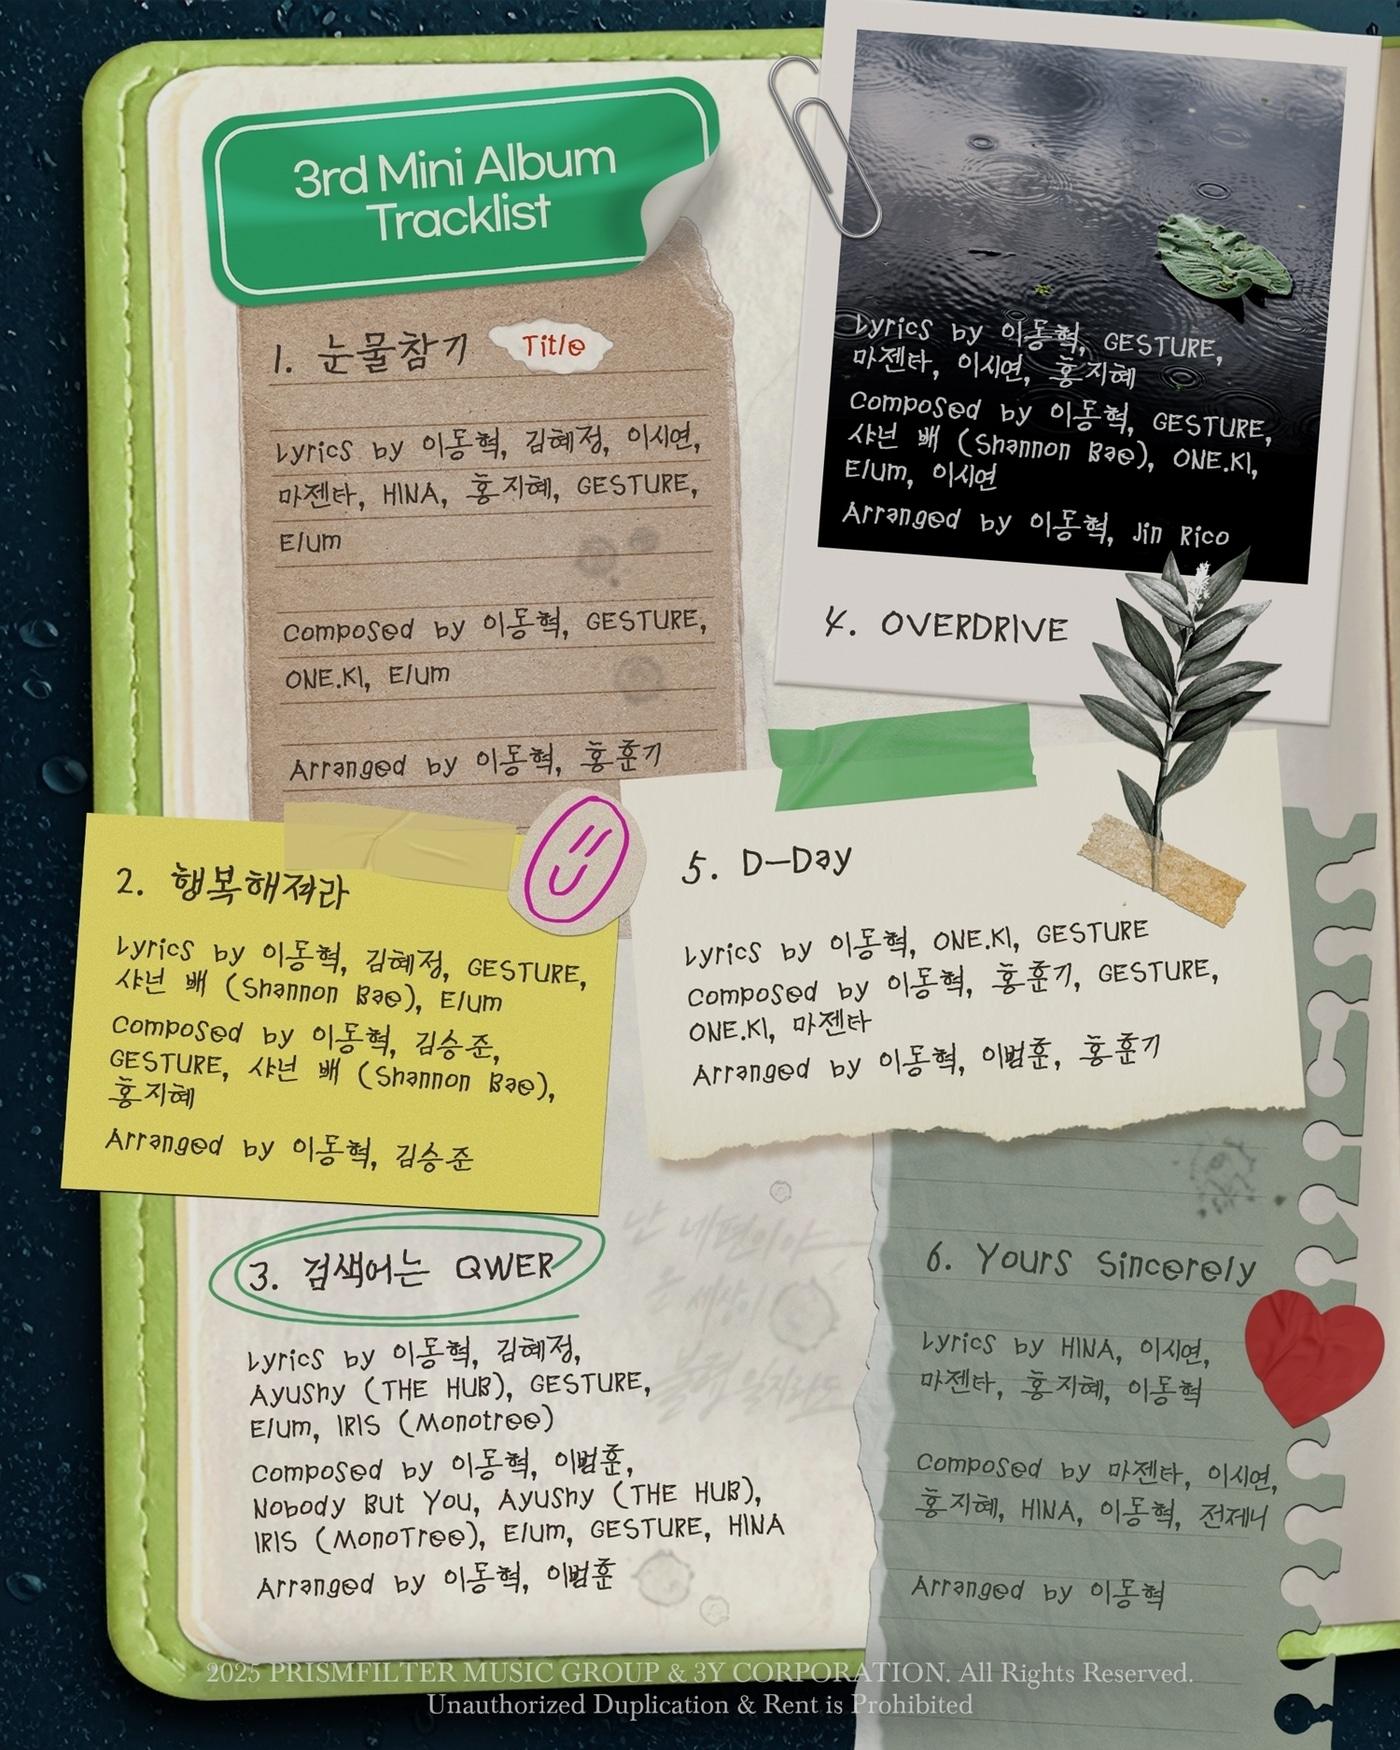 3rd Mini Album
Tracklist
1. 눈물참기 Title
Lyrics by 이동혁, 김혜정, 이시연,
마젠타, HINA, 홍지혜, GESTURE,
Elum
Composed by 이동혁, GESTURE,
ONE.KI, Elum
Arranged by 이동혁, 홍훈기
2. 행복해져라
Lyrics by 이동혁, 김혜정, GESTURE,
샤넌 배 (Shannon Bae), Elum
Composed by 이동혁, 김승준,
GESTURE, 샤넌 배 (Shannon Bae),
홍지혜
Arranged by 이동혁, 김승준
3. 검색어는 QWER
Lyrics by 이동혁, 김혜정,
Ayushy (THE HUB), GESTURE,
Elum, IRIS (Monotree)
Composed by 이동혁, 이범훈,
Nobody But You, Ayushy (THE HUB),
IRIS (MonoTree), Elum, GESTURE, HINA
Arranged by 이동혁, 이범훈
Lyrics by 이동혁, GESTURE,
마젠타, 이시연, 홍지혜
Composed by 이동혁, GESTURE,
샤넌 배 (Shannon Bae), ONE.KI,
Elum, 이시연
Arranged by 이동혁, Jin Rico
4. OVERDRIVE
5. D-Day
Lyrics by 이동혁, ONE.KI, GESTURE
Composed by 이동혁, 홍훈기, GESTURE,
ONE.KI, 마젠타
Arranged by 이동혁, 이범훈, 홍훈기
난 네편이야
6. Yours Sincerely
Lyrics by HINA, 이시연,
마젠타, 홍지혜, 이동혁
Composed by 마젠타, 이시연,
홍지혜, HINA, 이동혁, 전제니
Arranged by 이동혁
2025 PRISMFILTER MUSIC GROUP & 3Y CORPORATION. All Rights Reserved.
Unauthorized Duplication & Rent is Prohibited